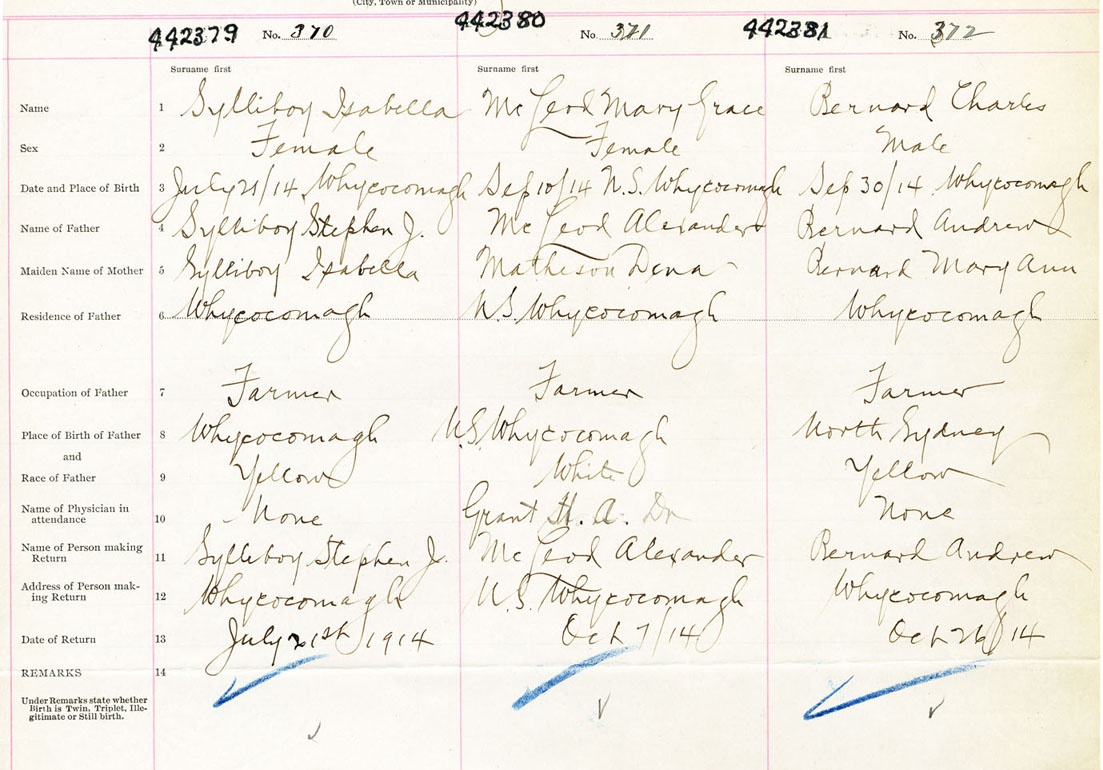 (City, Town or Municipality)
442379 No. 370 442380 No. 371 442381 No. 372
Surname first Surname first Surname first
Name 1 Sylliboy Isabella McLeod Mary Grace Bernard Charles
Sex 2 Female Female Male
Date and Place of Birth 3 July 21/14 Whycocomagh Sep 10/14 N.S. Whycocomagh Sep 30/14 Whycocomagh
Name of Father 4 Sylliboy Stephen J. McLeod Alexander Bernard Andrew
Maiden Name of Mother 5 Sylliboy Isabella Matheson Dena Bernard Mary Ann
Residence of Father 6 Whycocomagh N.S. Whycocomagh Whycocomagh
Occupation of Father 7 Farmer Farmer Farmer
Place of Birth of Father 8 Whycocomagh N.S. Whycocomagh North Sydney
and
Race of Father 9 Yellow White Yellow
Name of Physician in
attendance 10 None Grant H. A. Dr None
Name of Person making
Return 11 Sylliboy Stephen J. McLeod Alexander Bernard Andrew
Address of Person mak-
ing Return 12 Whycocomagh N.S. Whycocomagh Whycocomagh
Date of Return 13 July 21st 1914 Oct 7/14 Oct 26/14
REMARKS 14
Under Remarks state whether
Birth is Twin, Triplet, Ille-
gitimate or Still birth.